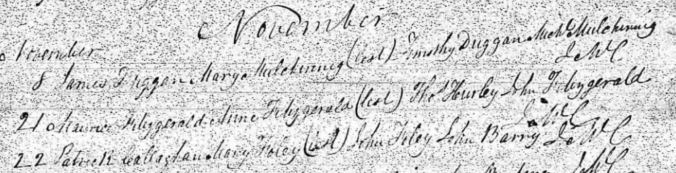 November
November
8 James Duggan Mary Mulchinnig (test) Timothy Duggan Mulchinnig
J McC
21 Maurice Fitzgerald Anne Fitzgerald (test) Thos Hurley John Fitzgerald
McC
22 Patrick Callaghan Mary Foley (test) John Foley John Barry J McC